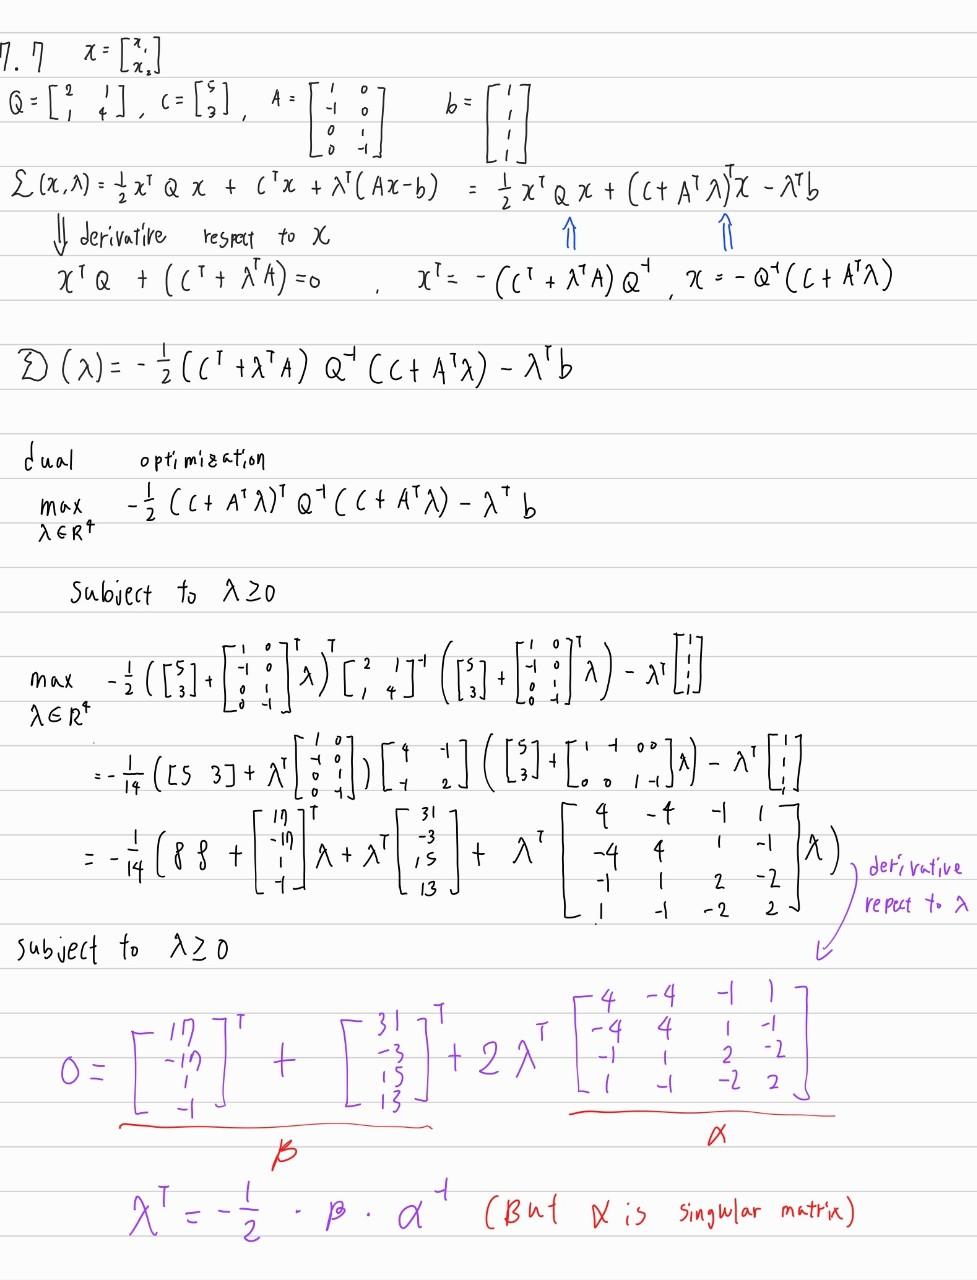 7.7 x = [x₁ x₂]
Q = [2 1; 1 4], C = [5; 3], A = [1 0; -1 0; 0 1; 0 -1] b = [1; 1; 1; 1]
𝓛(x,λ) = ½xᵀQx + Cᵀx + λᵀ(Ax-b) = ½xᵀQx + (C+Aᵀλ)ᵀx - λᵀb
⇓ derivative respect to x ⇑ ⇑
xᵀQ + (Cᵀ + λᵀA) = 0 , xᵀ = -(Cᵀ + λᵀA)Q⁻¹, x = -Q⁻¹(C + Aᵀλ)
𝔇(λ) = -½(Cᵀ + λᵀA) Q⁻¹(C + Aᵀλ) - λᵀb
dual optimization
max -½(C + Aᵀλ)ᵀQ⁻¹(C + Aᵀλ) - λᵀb
λ∈R⁴
subject to λ≥0
max -½([5; 3] + [1 0; -1 0; 0 1; 0 -1]ᵀλ)ᵀ[2 1; 1 4]⁻¹([5; 3] + [1 0; -1 0; 0 1; 0 -1]ᵀλ) - λᵀ[1; 1; 1; 1]
λ∈R⁴
= -1/14([5 3] + λᵀ[1 0; -1 0; 0 1; 0 -1])[4 -1; -1 2]([5; 3] + [1 -1 0 0; 0 0 1 -1]λ) - λᵀ[1; 1; 1; 1]
= -1/14(88 + [17; -17; 1; -1]ᵀλ + λᵀ[31; -3; 15; 13] + λᵀ[4 -4 -1 1; -4 4 1 -1; -1 1 2 -2; 1 -1 -2 2]λ)
derivative
repect to λ
subject to λ≥0
0 = [17; -17; 1; -1]ᵀ + [31; -3; 15; 13]ᵀ + 2λᵀ[4 -4 -1 1; -4 4 1 -1; -1 1 2 -2; 1 -1 -2 2]
β α
λᵀ = -½ · β · α⁻¹ (But α is singular matrix)